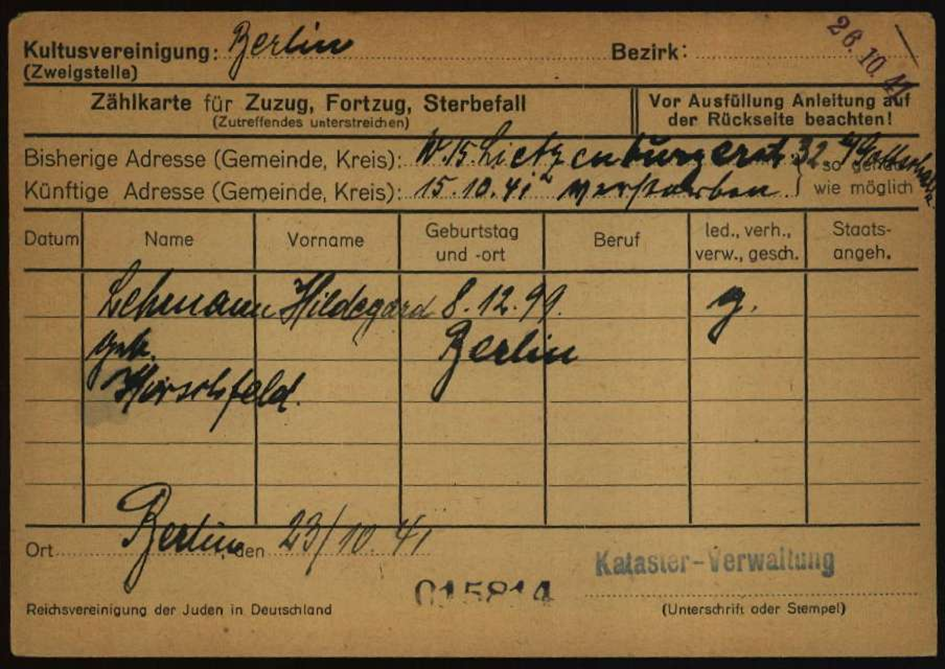 Kultusvereinigung: Berlin Bezirk: 26.10.41
(Zweigstelle)
Zählkarte für Zuzug, Fortzug, Sterbefall
(Zutreffendes unterstreichen)
Vor Ausfüllung Anleitung auf
der Rückseite beachten!
Bisherige Adresse (Gemeinde, Kreis): W 15. Lietzenburgerstr. 32.
Künftige Adresse (Gemeinde, Kreis): 15.10.41 verstorben
so genau
wie möglich
Datum Name Vorname Geburtstag und -ort Beruf led., verh., verw., gesch. Staats-angeh.
Lehmann Hildegard 8.12.99. g.
geb. Berlin
Hirschfeld.
Ort Berlin, den 23/10.41
Kataster-Verwaltung
015814
Reichsvereinigung der Juden in Deutschland (Unterschrift oder Stempel)